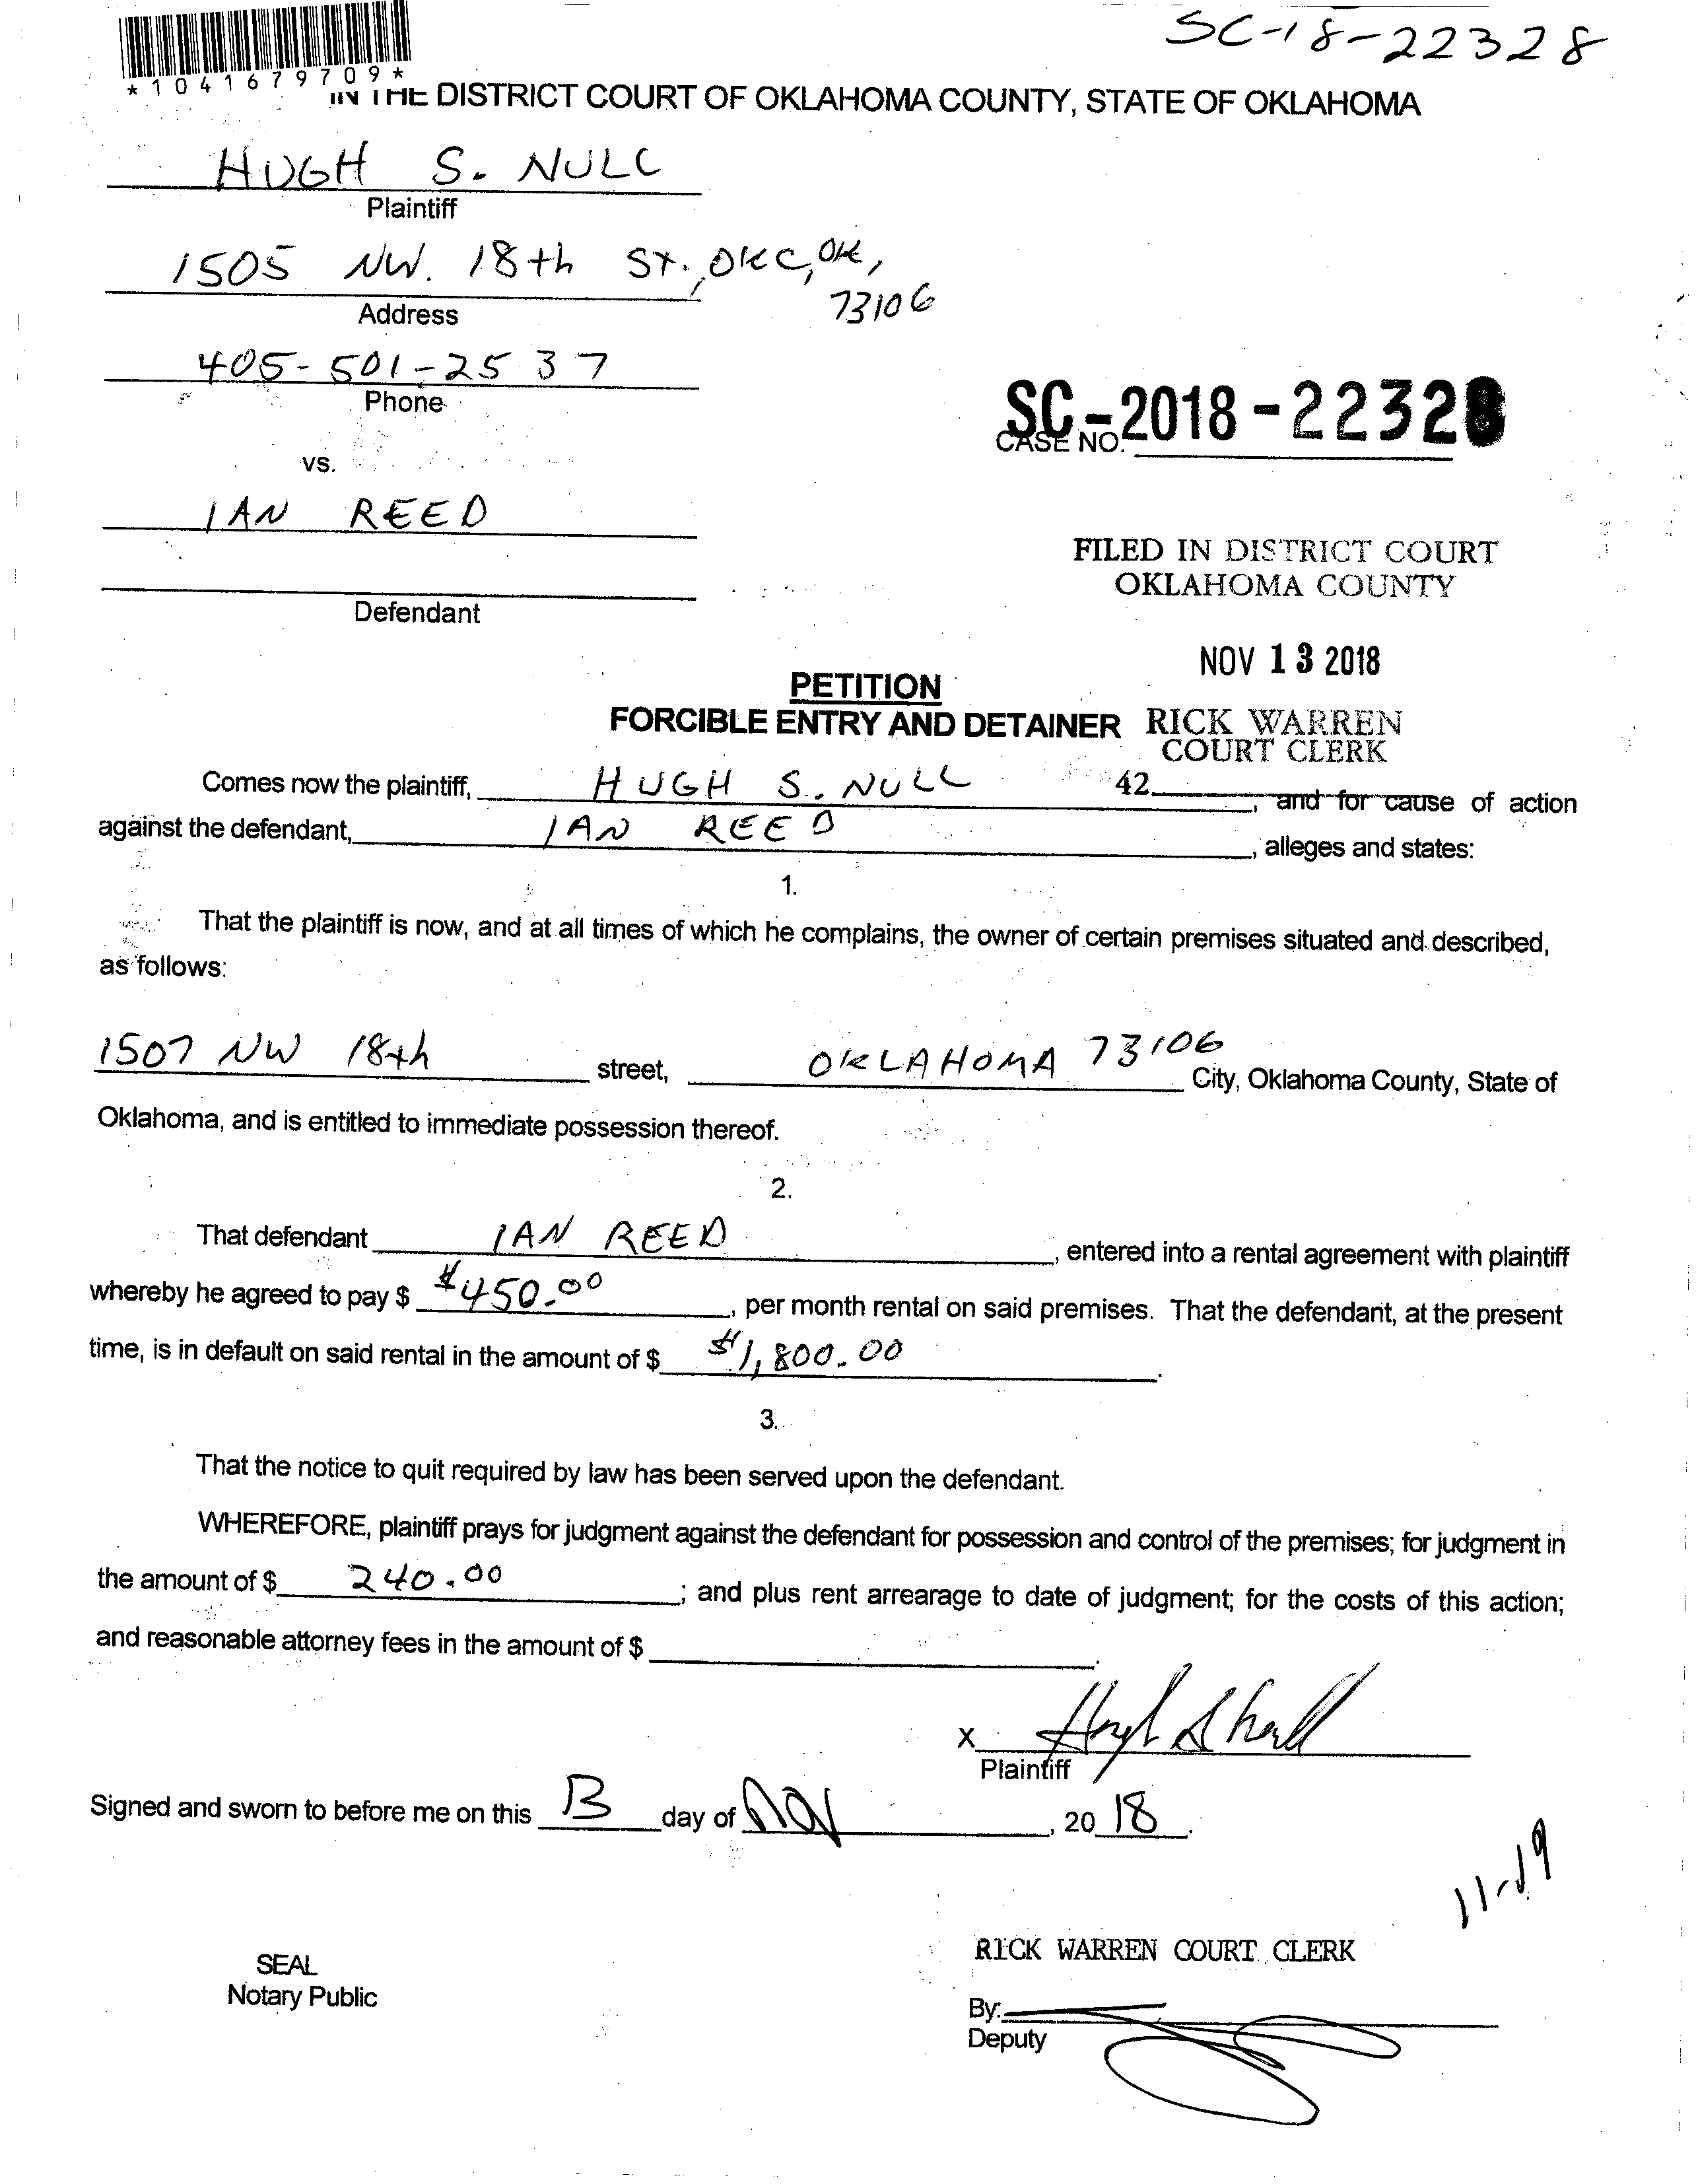 SC-18-22328
*1041679709*
IN THE DISTRICT COURT OF OKLAHOMA COUNTY, STATE OF OKLAHOMA
HUGH S. NULL
Plaintiff
1505 NW. 18th St., OKC, OK,
73106
Address
405-501-2537
Phone
SC-2018-22328
CASE NO.
vs.
IAN REED
FILED IN DISTRICT COURT
OKLAHOMA COUNTY
Defendant
NOV 13 2018
PETITION
FORCIBLE ENTRY AND DETAINER RICK WARREN
COURT CLERK
Comes now the plaintiff, HUGH S. NULL 42 , and for cause of action
against the defendant, IAN REED , alleges and states:
1.
That the plaintiff is now, and at all times of which he complains, the owner of certain premises situated and described,
as follows:
1507 NW 18th street, OKLAHOMA 73106 City, Oklahoma County, State of
Oklahoma, and is entitled to immediate possession thereof.
2.
That defendant IAN REED , entered into a rental agreement with plaintiff
whereby he agreed to pay $ $450.00 , per month rental on said premises. That the defendant, at the present
time, is in default on said rental in the amount of $ $1,800.00 .
3.
That the notice to quit required by law has been served upon the defendant.
WHEREFORE, plaintiff prays for judgment against the defendant for possession and control of the premises; for judgment in
the amount of $ 240.00 ; and plus rent arrearage to date of judgment; for the costs of this action;
and reasonable attorney fees in the amount of $ .
X Hugh S Null
Plaintiff
Signed and sworn to before me on this 13 day of Nov , 20 18 .
11-19
RICK WARREN COURT CLERK
SEAL
Notary Public
By:
Deputy